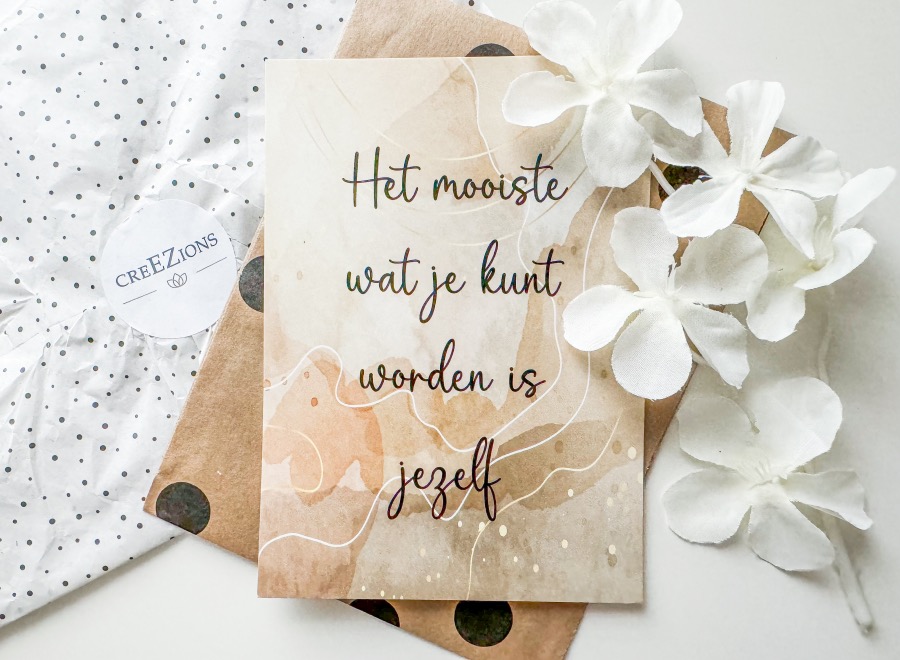 creEZions
Het mooiste
wat je kunt
worden is
jezelf